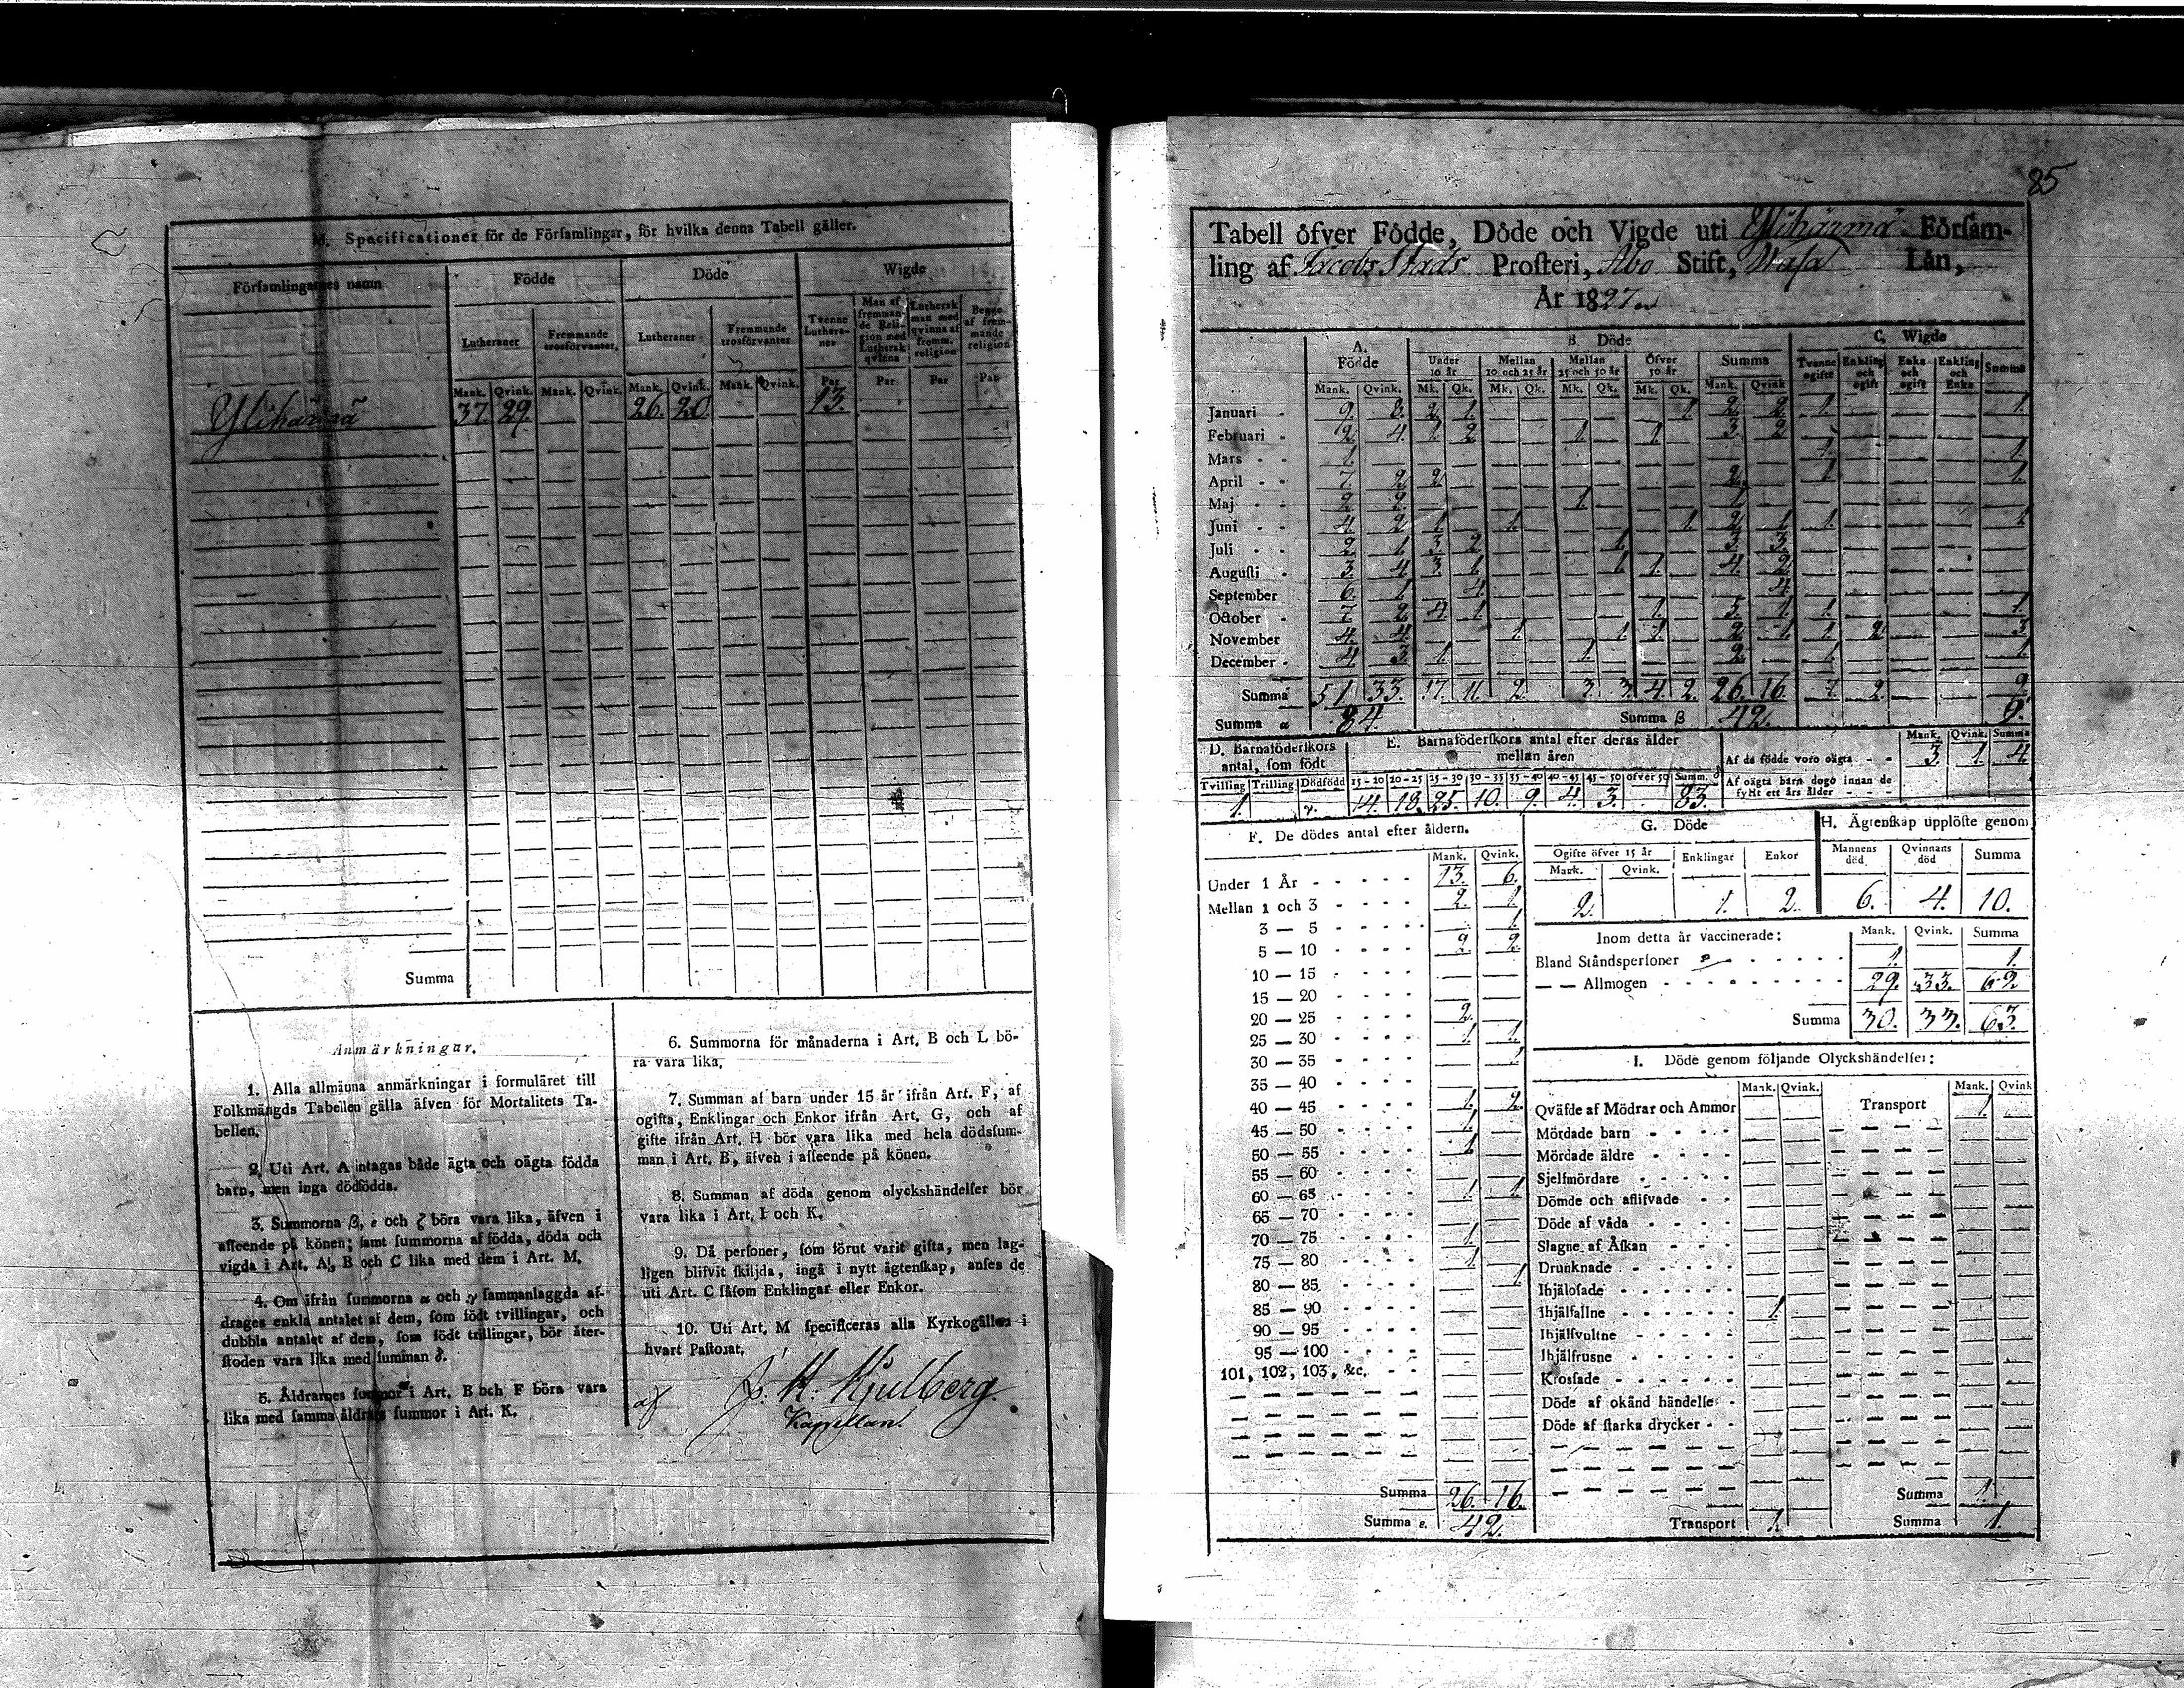 M. Specificationer för de Församlingar, för hvilka denna Tabell gäller.
Församlingarnes namn Födde Döde Wigde
Lutheraner Fremmande trosförvanter. Lutheraner Fremmande trosförvanter Tvenne Lutheraner Man af fremmande Religion med Luthersk qvinna Luthersk man med qvinna af fremm. religion Begge af fremmande religion
Mank. Qvink. Mank. Qvink. Mank. Qvink. Mank. Qvink. Par Par Par Par
Ylihärmä 37. 29. — — 26. 20. — — 13. — — —
Summa
Anmärkningar.
1. Alla allmänna anmärkningar i formuläret till
Folkmängds Tabellen gälla äfven för Mortalitets Ta-
bellen.
2. Uti Art. A intagas både ägta och oägta födda
barn, men inga dödfödda.
3. Summorna β, ε och ζ böra vara lika, äfven i
afseende på könen; samt summorna af födda, döda och
vigda i Art. A, B och C lika med dem i Art. M.
4. Om ifrån summorna α och γ sammanlaggda af-
drages enkla antalet af dem, som födt tvillingar, och
dubbla antalet af dem, som födt trillingar, bör åter-
stoden vara lika med summan δ.
5. Åldrarnes summor i Art. B och F böra vara
lika med samma åldrars summor i Art. K.
6. Summorna för månaderna i Art. B och L bö-
ra vara lika.
7. Summan af barn under 15 år ifrån Art. F, af
ogifta, Enklingar och Enkor ifrån Art. G, och af
gifte ifrån Art. H bör vara lika med hela dödssum-
man i Art. B, äfven i afseende på könen.
8. Summan af döda genom olyckshändelser bör
vara lika i Art. I och K.
9. Då personer, som förut varit gifta, men lag-
ligen blifvit skiljda, ingå i nytt ägtenskap, anses de
uti Art. C såsom Enklingar eller Enkor.
10. Uti Art. M specificeras alla Kyrkogällen i
hvart Pastorat.
af J. H. Kjulberg.
Kapellan.
85
Tabell öfver Födde, Döde och Vigde uti Ylihärmä Försam-
ling af Jacobs Stads Prosteri, Åbo Stift, Wasa Län,
År 1827
A. Födde B. Döde C. Wigde
Under 10 år Mellan 10 och 25 år Mellan 25 och 50 år Öfver 50 år Summa Tvenne ogifte Enkling och ogift Enka och ogift Enkling och Enka Summa
Mank. Qvink. Mk. Qk. Mk. Qk. Mk. Qk. Mk. Qk. Mank. Qvink
Januari 9. 8. 2. 1. — — — — — 1. 2. 2. 1. — — — 1.
Februari 2. 4. 1. 2. — — 1. — 1. — 3. 2. — — — — —
Mars 1. — — — — — — — — — — — 1. — — — 1.
April 7. 2. 2. — — — — — — — 2. — 1. — — — 1.
Maj 2. 2. — — — — 1. — — — 1. — — — — — —
Juni 4. 2. 1. — 1. — — — — 1. 2. 1. 1. — — — 1.
Juli 2. 1. 3. 2. — — — 1. — — 3. 3. — — — — —
Augusti 3. 4. 3. 1. — — — 1. 1. — 4. 2. — — — — —
September 6. 1. — 4. — — — — — — — 4. — — — — —
October 7. 2. 4. 1. — — — — 1. — 5. 1. 1. — — — 1.
November 4. 4. — — 1. — — 1. 1. — 2. 1. 1. 2. — — 3.
December 4. 3. 1. — — — 1. — — — 2. — 1. — — — 1.
Summa 51 33. 17. 11. 2. — 3. 3. 4. 2. 26. 16. 7. 2. — — 9.
Summa α 84 Summa β 42. 9.
D. Barnaföderskors antal, som födt E. Barnaföderskors antal efter deras ålder mellan åren Mank. Qvink. Summa
Af de födde voro oägta 3. 1. 4.
Tvilling Trilling Dödfödd 15-20 20-25 25-30 30-35 35-40 40-45 45-50 öfver 50 Summ. δ Af oägta barn dogo innan de fyllt ett års ålder
1. 14. 18. 25. 10. 9. 4. 3. 83.
F. De dödes antal efter åldern.
Mank. Qvink.
Under 1 År 13. 6.
Mellan 1 och 3 2. 1.
3 — 5 — 1.
5 — 10 2. 2.
10 — 15 — —
15 — 20 — —
20 — 25 2. —
25 — 30 1. 1.
30 — 35 — 1.
35 — 40 — —
40 — 45 1. 2.
45 — 50 1. —
50 — 55 1. —
55 — 60 — —
60 — 65 1. 1.
65 — 70 — —
70 — 75 1. —
75 — 80 1. —
80 — 85 — 1.
85 — 90
90 — 95
95 — 100
101, 102, 103, &c.
Summa 26. 16.
Summa ε. 42.
G. Döde H. Ägtenskap upplöste genom
Ogifte öfver 15 år Enklingar Enkor Mannens död Qvinnans död Summa
Mank. Qvink.
2. 1. 2. 6. 4. 10.
Inom detta år vaccinerade: Mank. Qvink. Summa
Bland Ståndspersoner 1. 1.
— — Allmogen 29. 33. 62.
Summa 30. 33. 63.
I. Döde genom följande Olyckshändelser:
Mank. Qvink. Mank. Qvink
Qväfde af Mödrar och Ammor Transport 1.
Mördade barn
Mördade äldre
Sjelfmördare
Dömde och aflifvade
Döde af våda
Slagne af Åskan
Drunknade
Ihjälosade
Ihjälfallne 1.
Ihjälsvultne
Ihjälfrusne
Krossade
Döde af okänd händelse
Döde af starka drycker
Summa 1.
Transport 1. Summa 1.